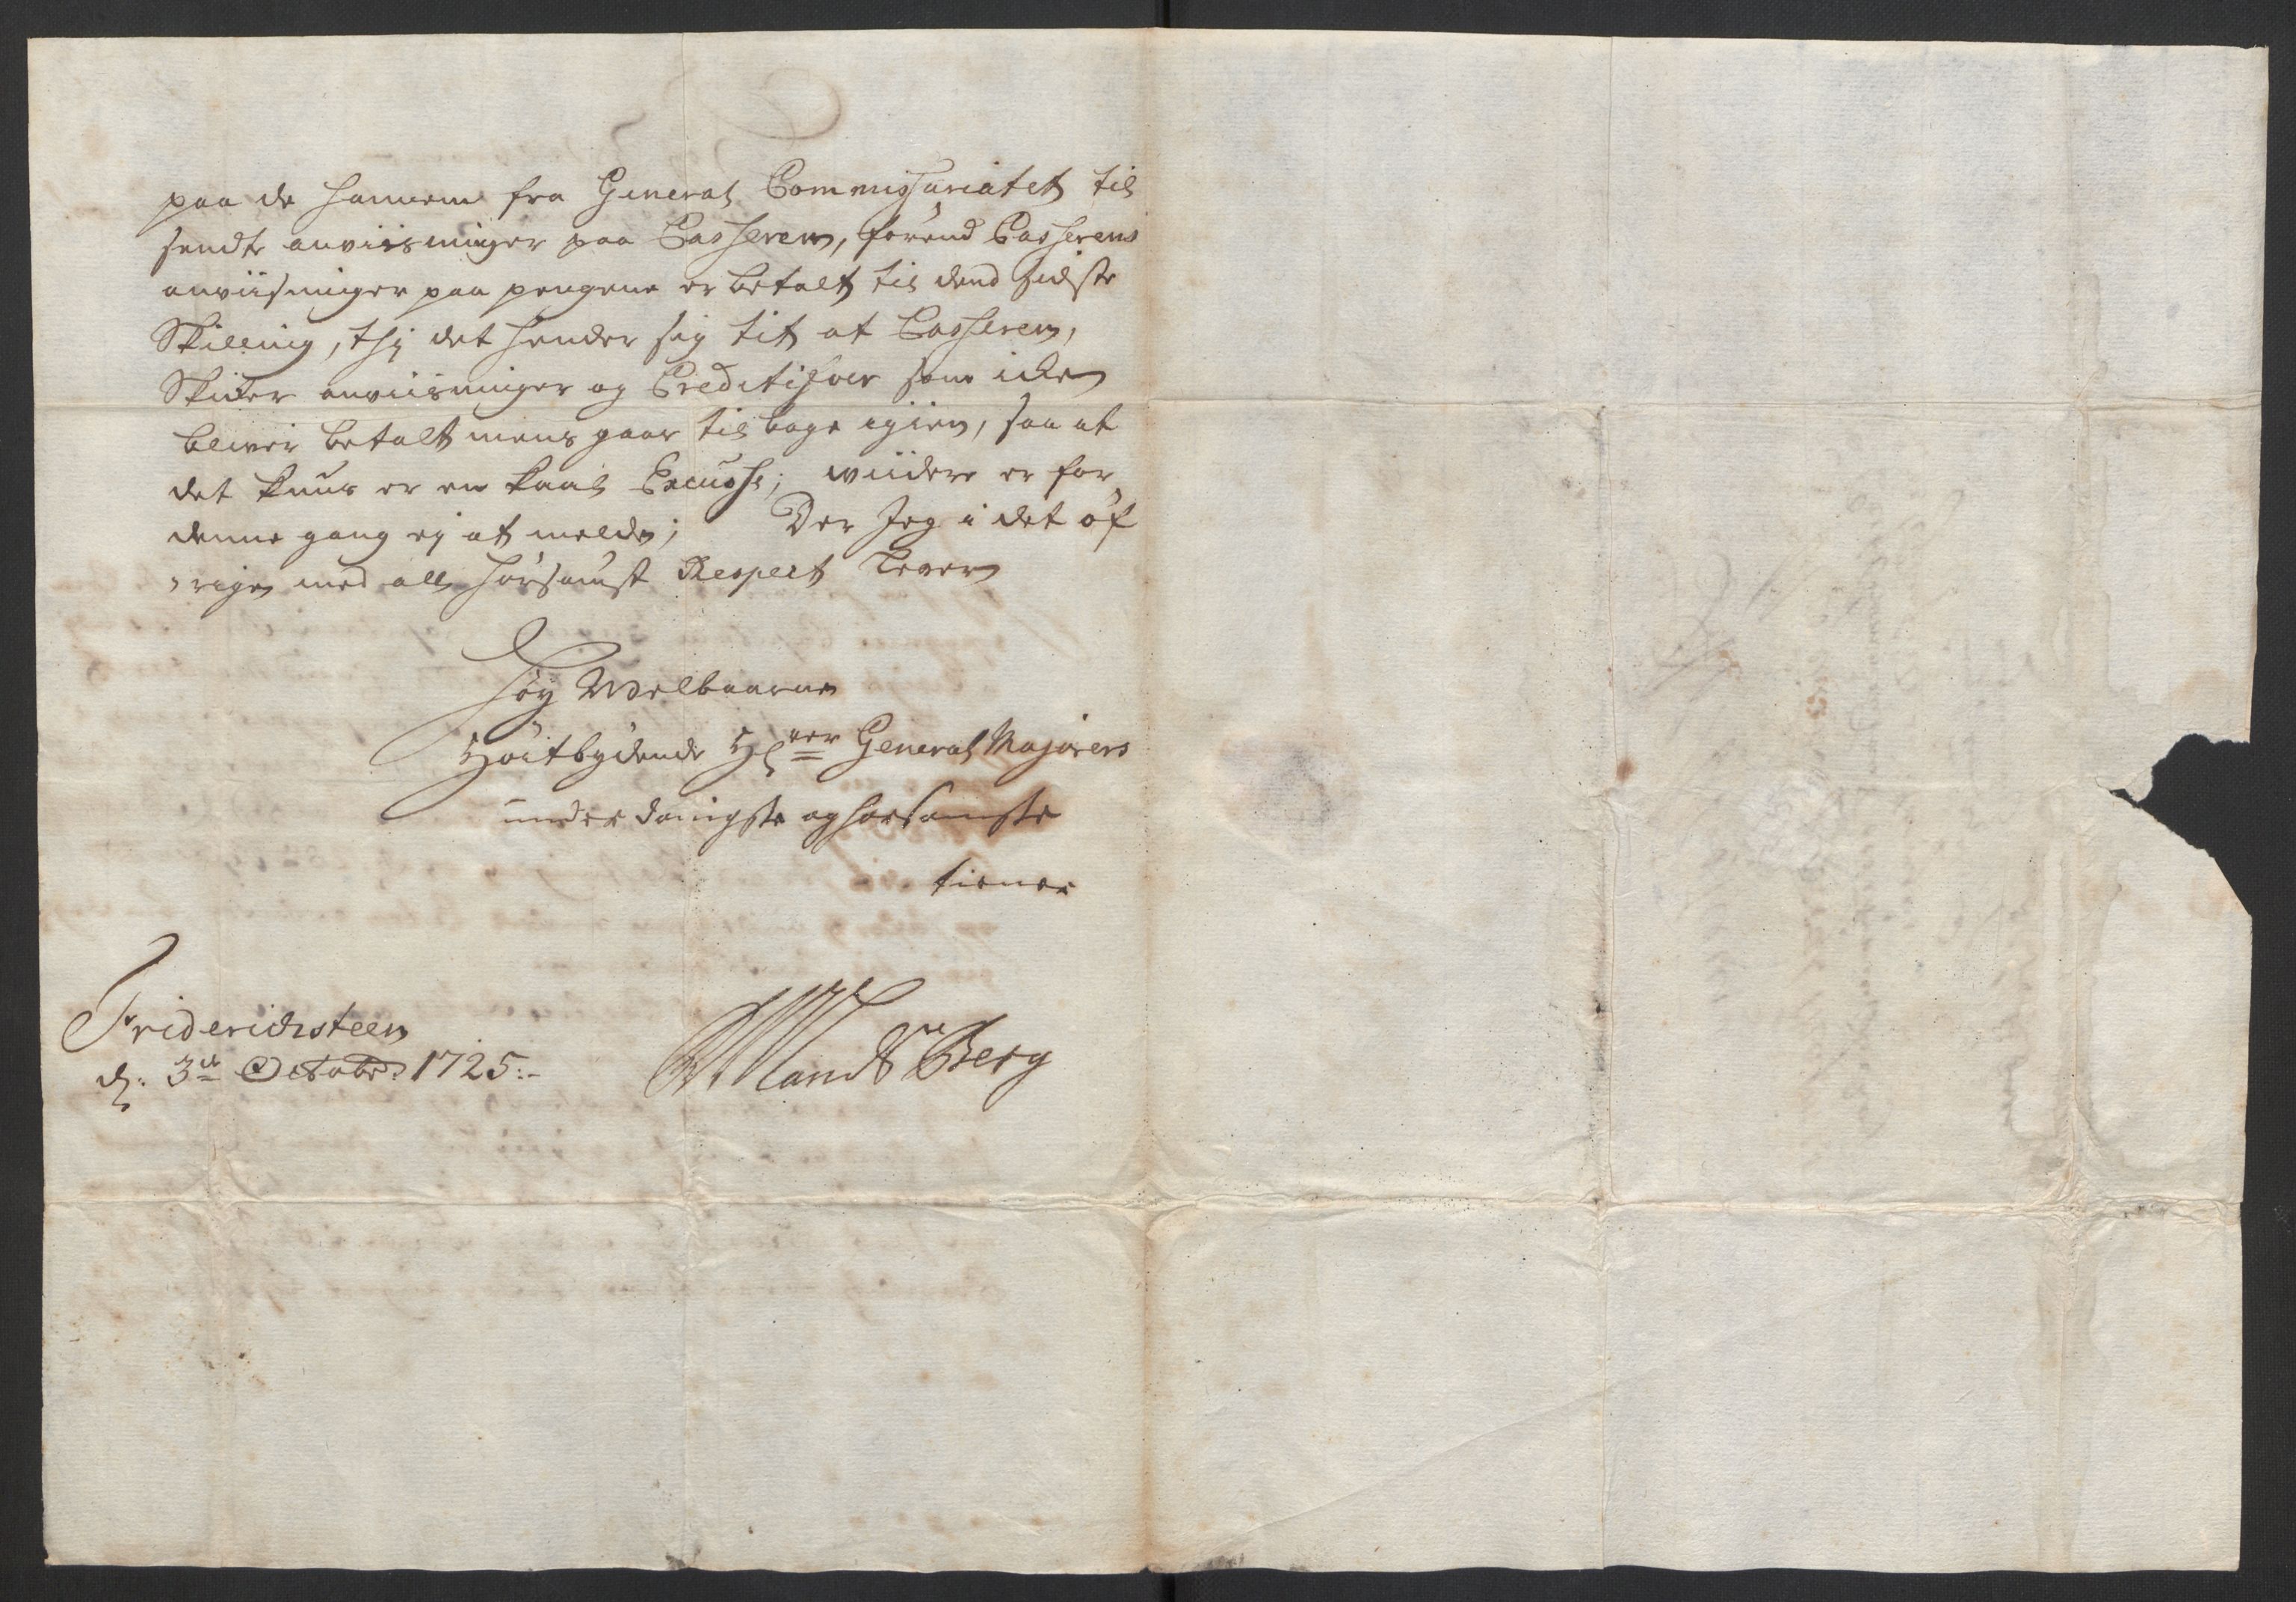 paa de hannem fra General Commissariatet til
sendte anviisninger paa Casseren, førend Casserens
anviisninger paa pengene er betalt til dend sidste
Skilling, thj det hender sig tit at Casseren,
Skicker anviisninger og Creditiver som icke
bliver betalt mens gaar tilbage igien, saa at
det kuns er en kaal Excusse; wiidere er for
denne gang ej at melde; Der Jeg i det öf
rige med all hörsamst Respect lever
Höy Welbaarne
Höitbydende Hr General Majorens
underdanigste og hörsamste
tiener
Friderichsteen
d: 3de Octobr: 1725:-
Mandt Berg